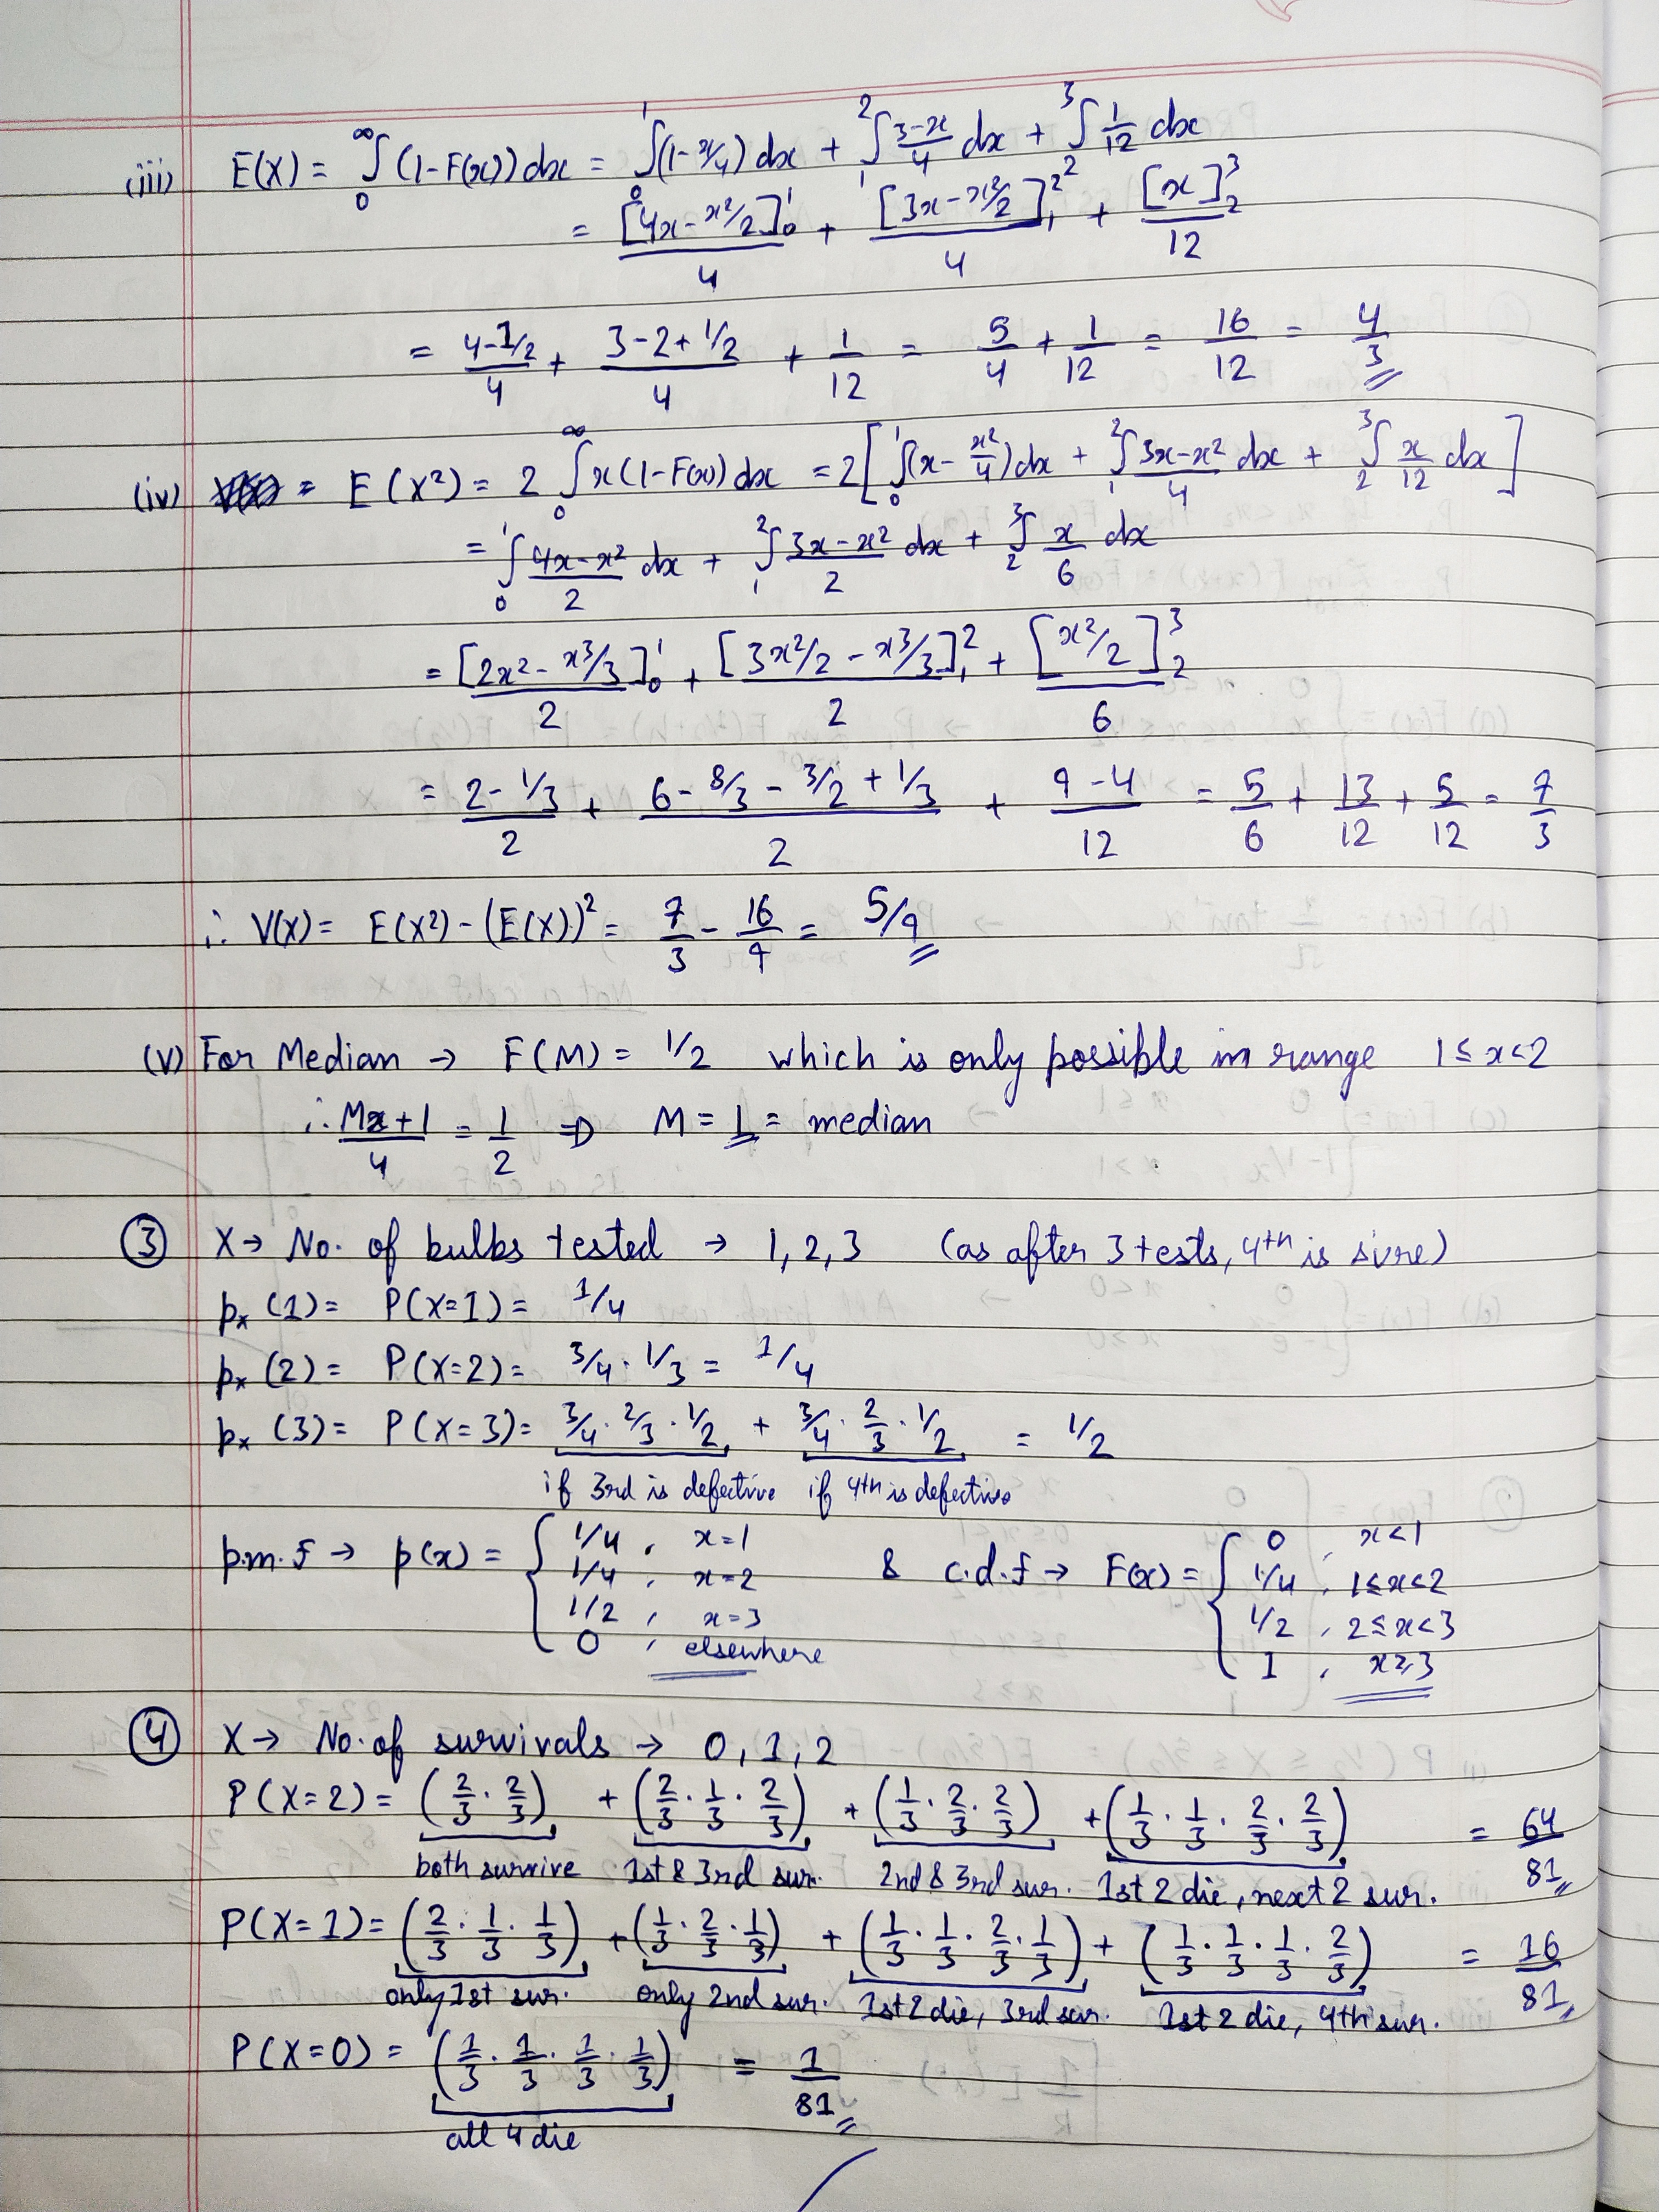 (iii) E(X) = ∞∫0 (1-F(x)) dx = 1∫0 (1-x/4) dx + 2∫1 3-x/4 dx + 3∫2 1/12 dx
= [4x - x²/2]¹₀/4 + [3x - x²/2]²₁/4 + [x]³₂/12
= 4-1/2/4 + 3-2+1/2/4 + 1/12 = 5/4 + 1/12 = 16/12 = 4/3
(iv) = E(X²) = 2 ∞∫0 x(1-F(x)) dx = 2[ 1∫0 (x - x²/4) dx + 2∫1 3x-x²/4 dx + 3∫2 x/12 dx ]
= 1∫0 4x-x²/2 dx + 2∫1 3x-x²/2 dx + 3∫2 x/6 dx
= [2x² - x³/3]¹₀/2 + [3x²/2 - x³/3]²₁/2 + [x²/2]³₂/6
= 2-1/3/2 + 6-8/3-3/2+1/3/2 + 9-4/12 = 5/6 + 13/12 + 5/12 = 7/3
∴ V(X) = E(X²) - (E(X))² = 7/3 - 16/9 = 5/9
(v) For Median → F(M) = 1/2 which is only possible in range 1 ≤ x < 2
∴ M+1/4 = 1/2 ⇒ M = 1 = median
③ X → No. of bulbs tested → 1, 2, 3 (as after 3 tests, 4th is sure)
pₓ(1) = P(X=1) = 1/4
pₓ(2) = P(X=2) = 3/4 · 1/3 = 1/4
pₓ(3) = P(X=3) = 3/4 · 2/3 · 1/2 + 3/4 · 2/3 · 1/2 = 1/2
if 3rd is defective if 4th is defective
p.m.f → p(x) = { 1/4, x=1 & c.d.f → F(x) = { 0, x<1
1/4, x=2 1/4, 1≤x<2
1/2, x=3 1/2, 2≤x<3
0, elsewhere 1, x≥3
④ X → No. of survivals → 0, 1, 2
P(X=2) = (2/3 · 2/3) + (2/3 · 1/3 · 2/3) + (1/3 · 2/3 · 2/3) + (1/3 · 1/3 · 2/3 · 2/3) = 64/81
both survive 1st & 3rd sur. 2nd & 3rd sur. 1st 2 die, next 2 sur.
P(X=1) = (2/3 · 1/3 · 1/3) + (1/3 · 2/3 · 1/3) + (1/3 · 1/3 · 2/3 · 1/3) + (1/3 · 1/3 · 1/3 · 2/3) = 16/81
only 1st sur. only 2nd sur. 1st 2 die, 3rd sur. 1st 2 die, 4th sur.
P(X=0) = (1/3 · 1/3 · 1/3 · 1/3) = 1/81
all 4 die